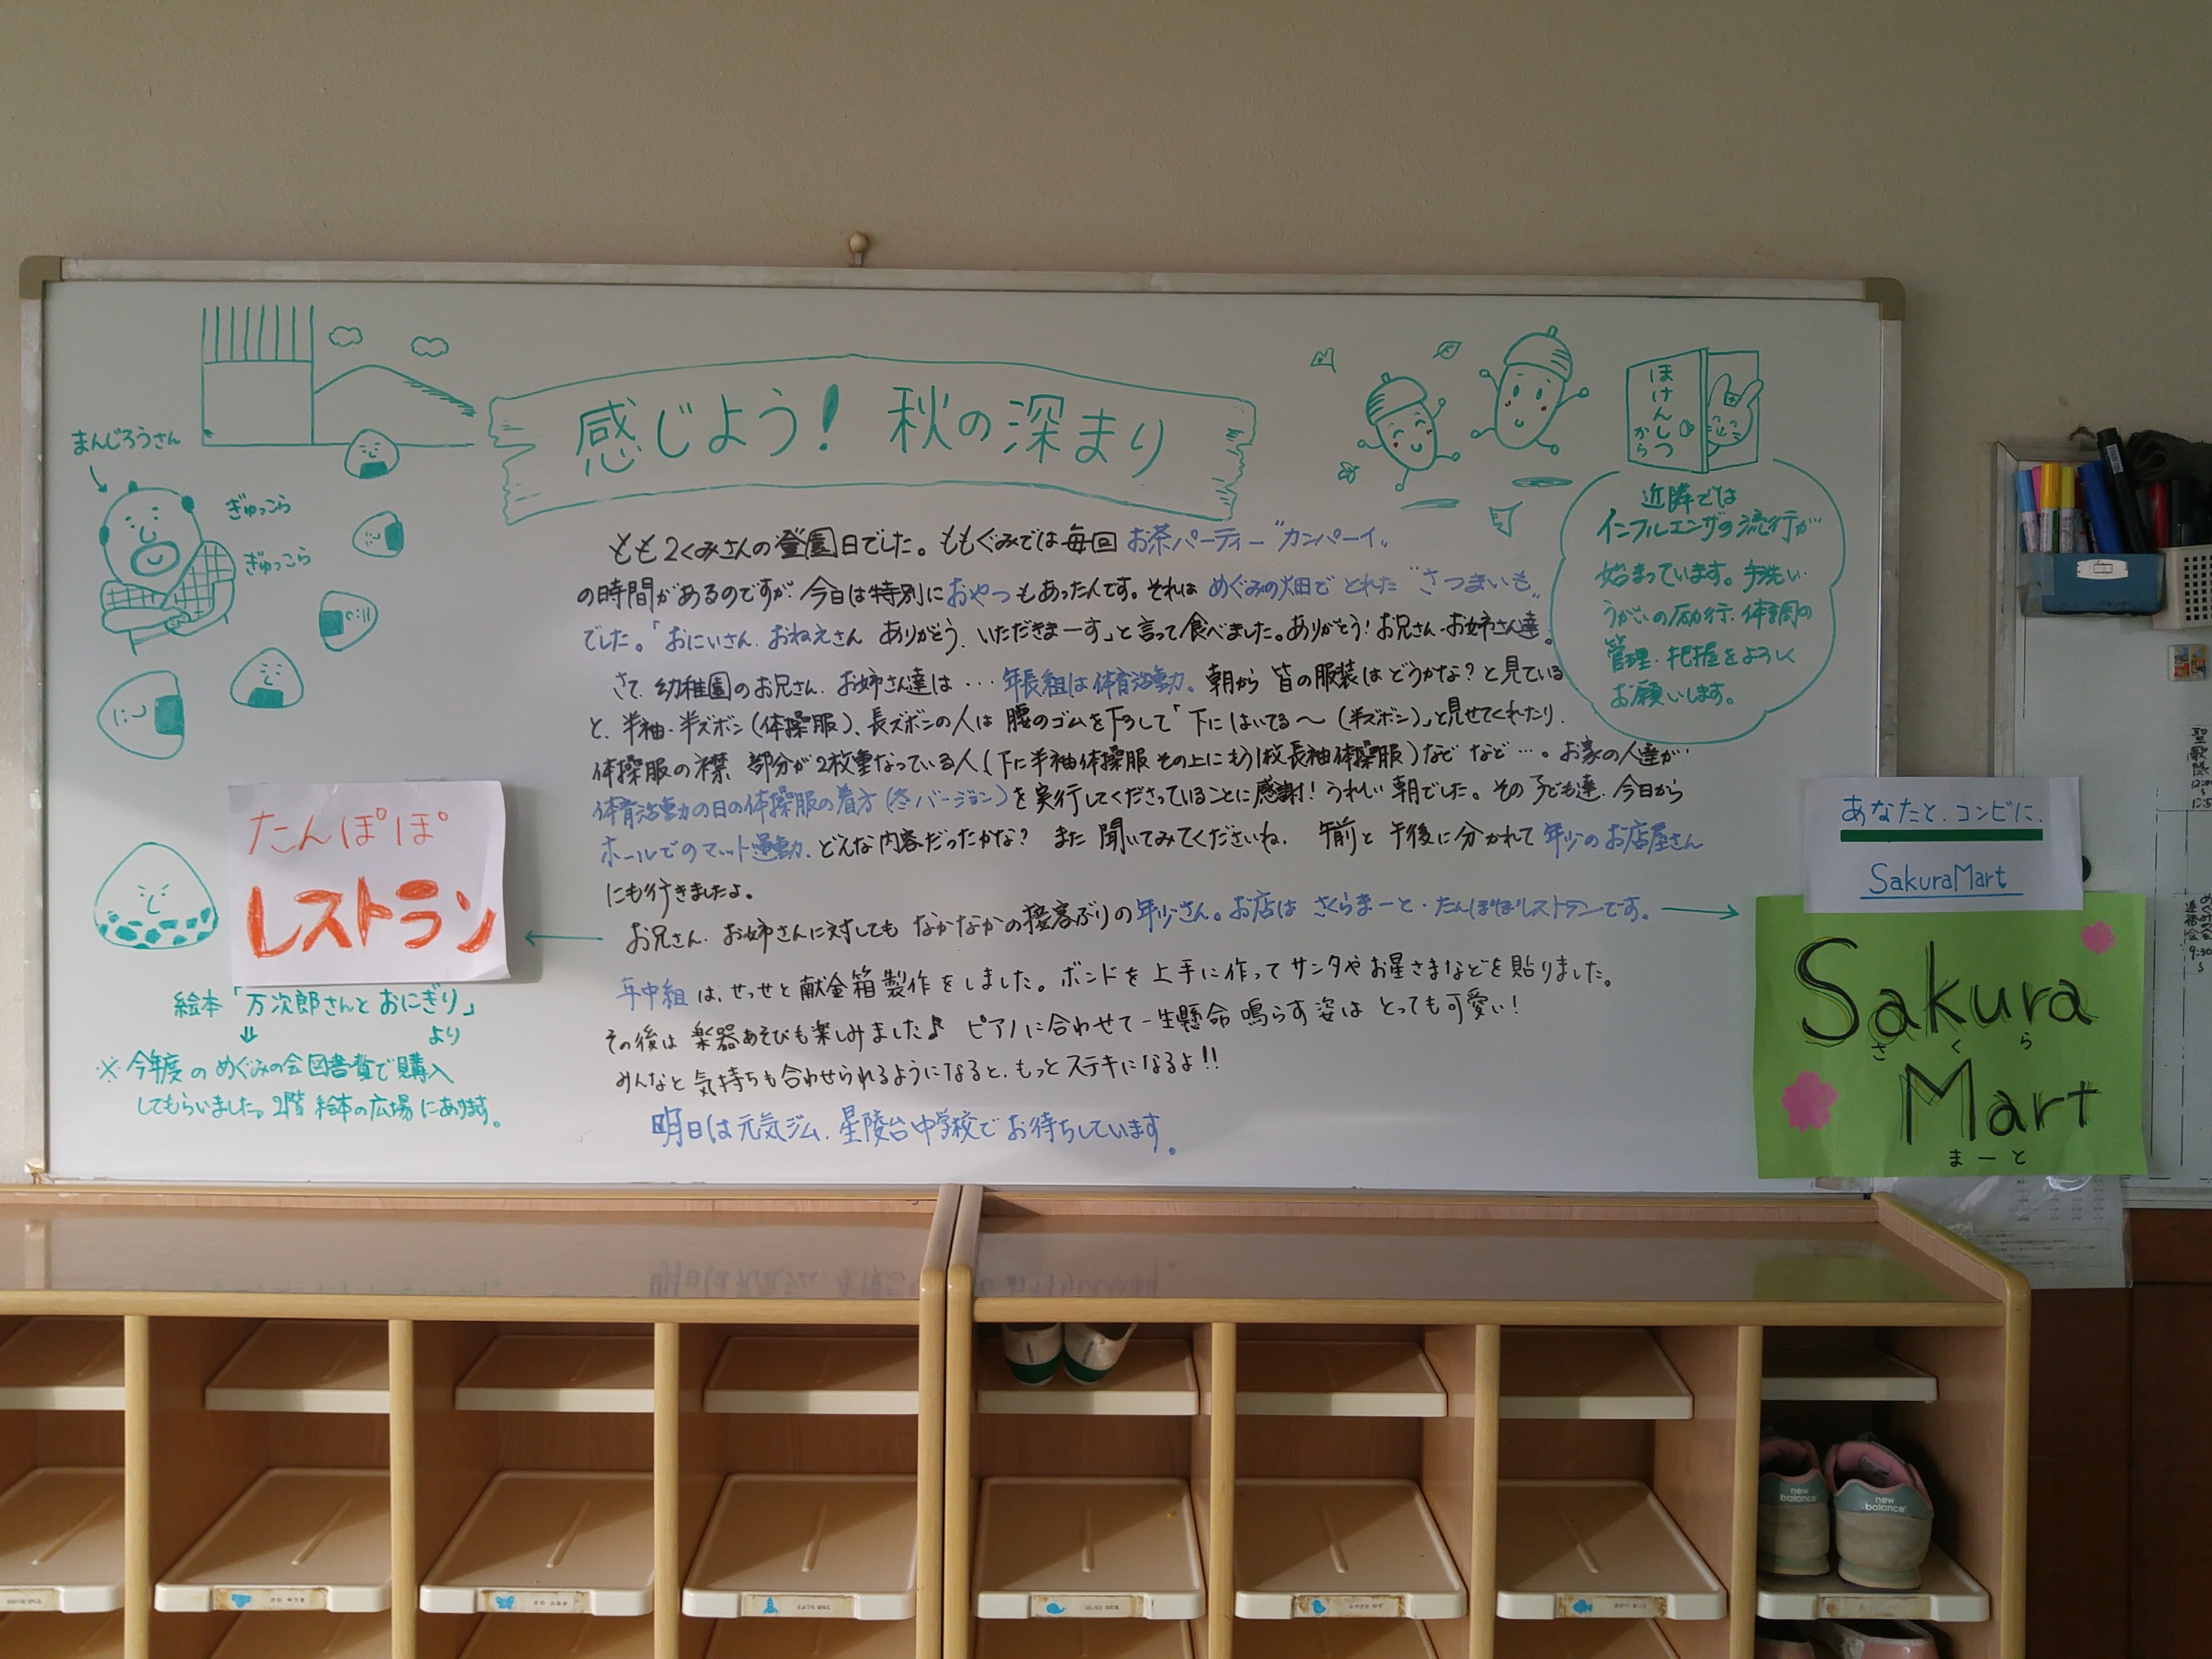 感じよう！ 秋の深まり
まんじろうさん
ぎゅっこら
ぎゅっこら
ほけんしつ
から
近隣では
インフルエンザの流行が
始まっています。手洗い・
うがいの励行、体調の
管理・把握をよろしく
お願いします。
もも2くみさんの登園日でした。ももぐみでは毎回 お茶パーティー"カンパーイ"
の時間があるのですが、今日は特別におやつもあったんです。それは めぐみの畑で とれた "さつまいも"
でした。「おにいさん、おねえさん ありがとう、いただきまーす」と言って食べました。ありがとう！お兄さん・お姉さん達。
さて、幼稚園のお兄さん、お姉さん達は・・・年長組は体育活動。朝から 皆の服装はどうかな？と見ている
と、半袖・半ズボン（体操服）、長ズボンの人は 腰のゴムを下ろして「下にはいてる〜（半ズボン）」と見せてくれたり、
体操服の襟 部分が2枚重なっている人（下に半袖体操服 その上にもう1枚長袖体操服）など など…。お家の人達が
体育活動の日の体操服の着方（冬バージョン）を実行してくださっていることに感謝！うれしい朝でした。その子ども達、今日から
ホールでのマット運動、どんな内容だったかな？ また 聞いてみてくださいね。 午前と 午後に分かれて 年少のお店屋さん
にも行きましたよ。
お兄さん、お姉さんに対しても なかなかの接客ぶりの年少さん。お店は さくらまーと・たんぽぽレストランです。
年中組は、せっせと献金箱製作をしました。ボンドを上手に作ってサンタやお星さまなどを貼りました。
その後は 楽器あそびも楽しみました♪ ピアノに合わせて一生懸命 鳴らす姿は とっても可愛い！
みんなと気持ちも合わせられるようになると、もっとステキになるよ!!
明日は元気ジム、星陵台中学校でお待ちしています。
たんぽぽ
レストラン
絵本「万次郎さんとおにぎり」
より
※今年度のめぐみの会図書費で購入
してもらいました。2階 絵本の広場にあります。
あなたと、コンビに、
SakuraMart
Sakura
さくら
Mart
まーと
new balance
new balance